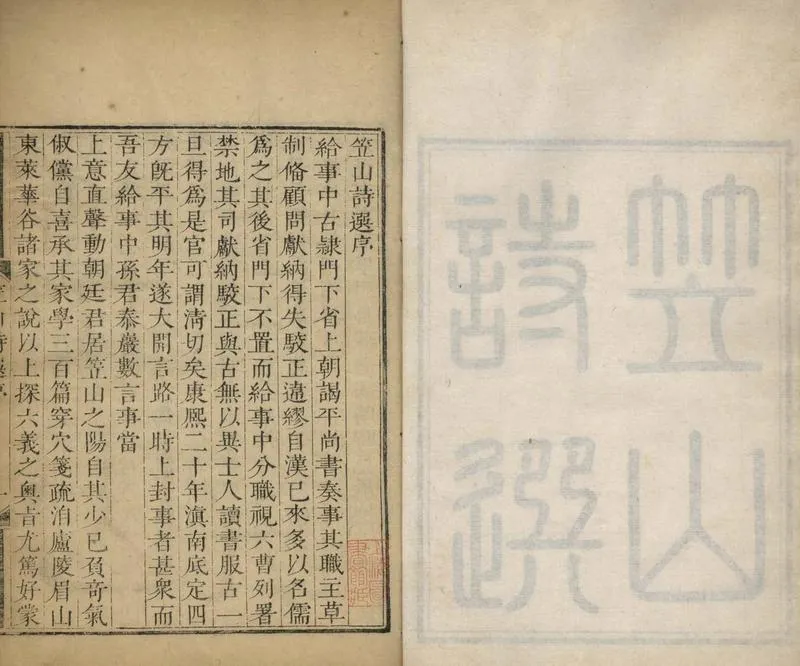 笠山
詩選
笠山詩選序
給事中古隷門下省上朝謁平尚書奏事其職主草
制俻顧問獻納得失駮正違繆自漢已來多以名儒
爲之其後省門下不置而給事中分職視六曹列署
禁地其司獻納駮正與古無以異士人讀書服古一
旦得爲是官可謂淸切矣康熙二十年滇南底定四
方旣平其明年遂大開言路一時上封事者甚衆而
吾友給事中孫君㤗巖數言事當
上意直聲動朝廷君居笠山之陽自其少已負奇氣
俶儻自喜承其家學三百篇穿穴箋疏洎廬陵眉山
東萊華谷諸家之說以上探六義之奧旨尤篤好蒙
笠山詩選序
一